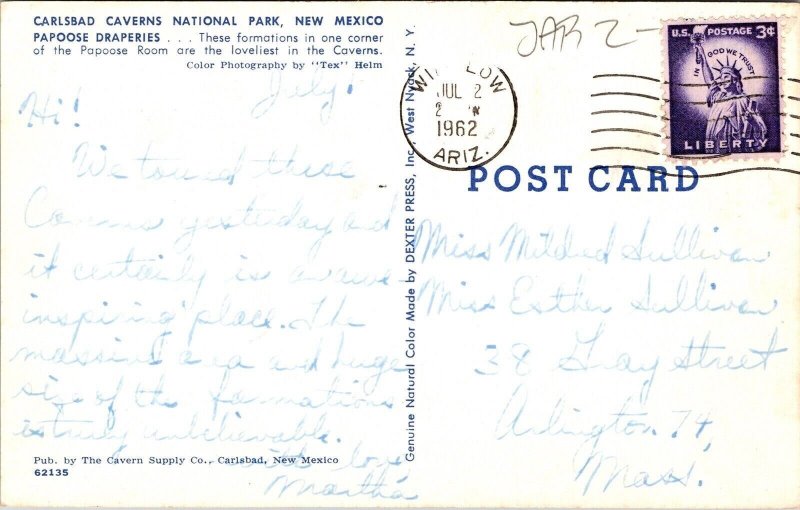 CARLSBAD CAVERNS NATIONAL PARK, NEW MEXICO
PAPOOSE DRAPERIES . . . These formations in one corner
of the Papoose Room are the loveliest in the Caverns.
Color Photography by "Tex" Helm
July 1
Hi!
We toured these
Caverns yesterday and
it certainly is an awe-
inspiring place. The
massive area and huge
size of the formations
is truly unbelievable.
with love
Martha
Pub. by The Cavern Supply Co., Carlsbad, New Mexico
62135
Genuine Natural Color Made by DEXTER PRESS, Inc., West Nyack, N. Y.
JAR 2-
WINSLOW
JUL 2
2
1962
ARIZ.
U.S. POSTAGE 3¢
IN GOD WE TRUST
LIBERTY
POST CARD
Miss Mildred Sullivan
Miss Esther Sullivan
38 Gray Street
Arlington 74,
Mass.